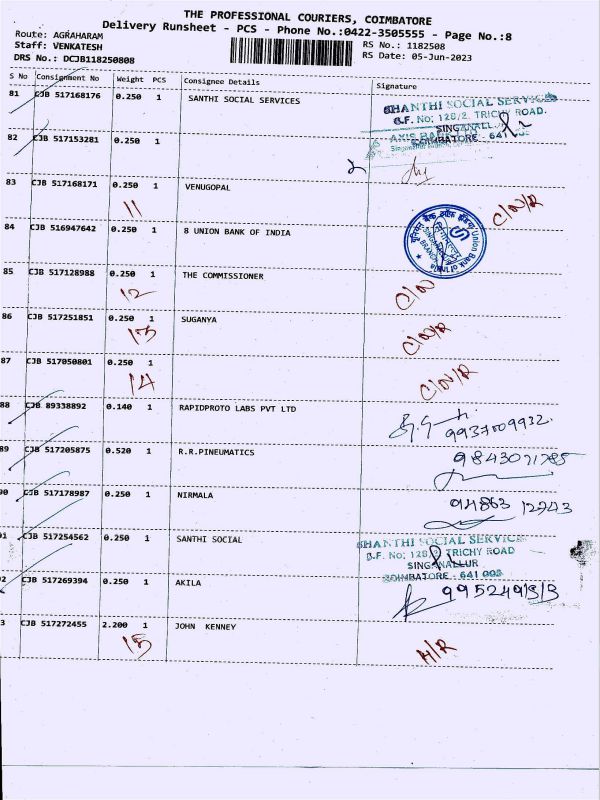 THE PROFESSIONAL COURIERS, COIMBATORE
Delivery Runsheet - PCS - Phone No.:0422-3505555 - Page No.:8
Route: AGRAHARAM
Staff: VENKATESH
DRS No.: DCJB118250808
RS No.: 1182508
RS Date: 05-Jun-2023
S No Consignment No Weight PCS Consignee Details Signature
81 CJB 517168176 0.250 1 SANTHI SOCIAL SERVICES
SHANTHI SOCIAL SERVICES
G.F. No: 128/2, TRICHY ROAD.
SINGANALL
COIMBATORE - 641
82 CJB 517153281 0.250 1
AXIS BANK
83 CJB 517168171 0.250 1 VENUGOPAL
11 C/N/R
84 CJB 516947642 0.250 1 8 UNION BANK OF INDIA
Union Bank of India
85 CJB 517128988 0.250 1 THE COMMISSIONER
12 C/N
86 CJB 517251851 0.250 1 SUGANYA
13 C/N/R
87 CJB 517050801 0.250 1
14 C/N/R
88 CJB 89338892 0.140 1 RAPIDPROTO LABS PVT LTD
9937009932
89 CJB 517205875 0.520 1 R.R.PINEUMATICS
9843071785
90 CJB 517178987 0.250 1 NIRMALA
94863 12743
91 CJB 517254562 0.250 1 SANTHI SOCIAL
SHANTHI SOCIAL SERVICE
G.F. No: 128/2, TRICHY ROAD
SINGANALLUR
COIMBATORE - 641 005
2 CJB 517269394 0.250 1 AKILA
3 CJB 517272455 2.200 1 JOHN KENNEY
15